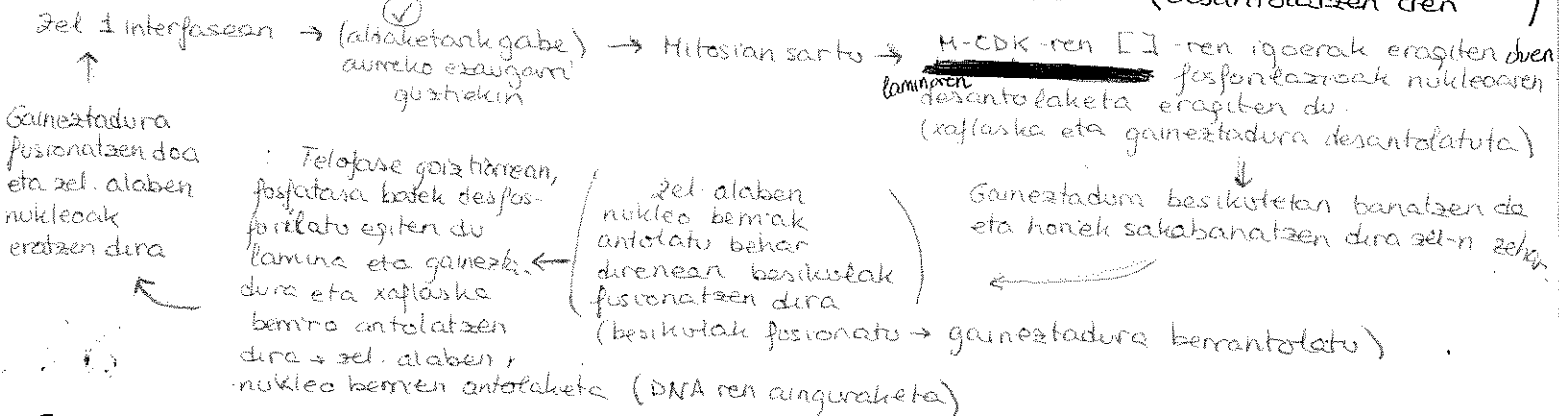 (desantolatzen dren )
Zel 1 interfasean → (aldaketarik gabe) → Mitosian sartu → M-CDK-ren [ ]-ren igoerak eragiten duen
aurreko ezaugarri
guztiekin
fosforilazioak nukleoaren
laminaren
desantolaketa eragiten du.
(xaflaska eta gaineztadura desantolatuta)
Gaineztadura besikuletan banatzen da
eta horiek sakabanatzen dira zel-n zehar.
zel. alaben
nukleo berriak
antolatu behar
direnean besikulak
fusionatzen dira
(besikulak fusionatu → gaineztadura berrantolatu)
: Telofase goiztiarrean,
fosfatasa batek desfos-
forilatu egiten du
lamina eta gainezta-
dura eta xaflaska
berriro antolatzen
dira → zel. alaben,
nukleo berrien antolaketa (DNA ren ainguraketa)
Gaineztadura
fusionatzen doa
eta zel. alaben
nukleoak
eratzen dira